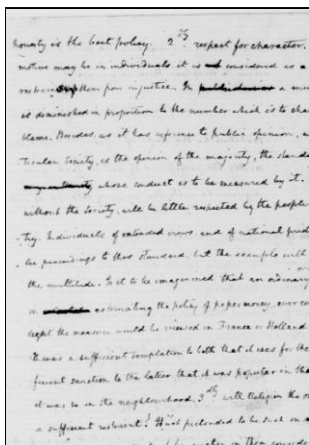 honesty is the best policy. 2dly respect for character.
motive may be in individuals, it is considered as a
restrain them from injustice. In a mul
is diminished in proportion to the number which is to sha
blame. Besides, as it has reference to public opinion, w
ticular Society, is the opinion of the majority, the standa
whose conduct is to be measured by it.
without the Society, will be little respected by the people
try. Individuals of extended views, and of national prid
be proceedings to this standard, but the example will
the multitude. Is it to be imagined that an ordinary
in estimating the policy of paper money, ever con
ught the measure would be viewed in France or Holland
It was a sufficient temptation to both that it was for the
ficient sanction to the latter that it was popular in the
it was so in the neighbourhood. 3dly will Religion the o
a sufficient restraint? It is not pretended to be such on